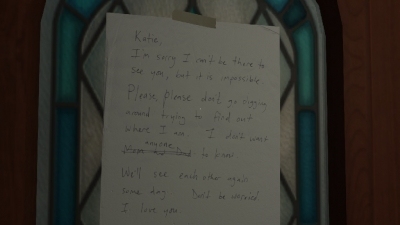 Katie,
I'm sorry I can't be there to
see you, but it is impossible.
Please, please don't go digging
around trying to find out
where I am. I don't want
anyone
to know.
We'll see each other again
some day. Don't be worried.
I love you.